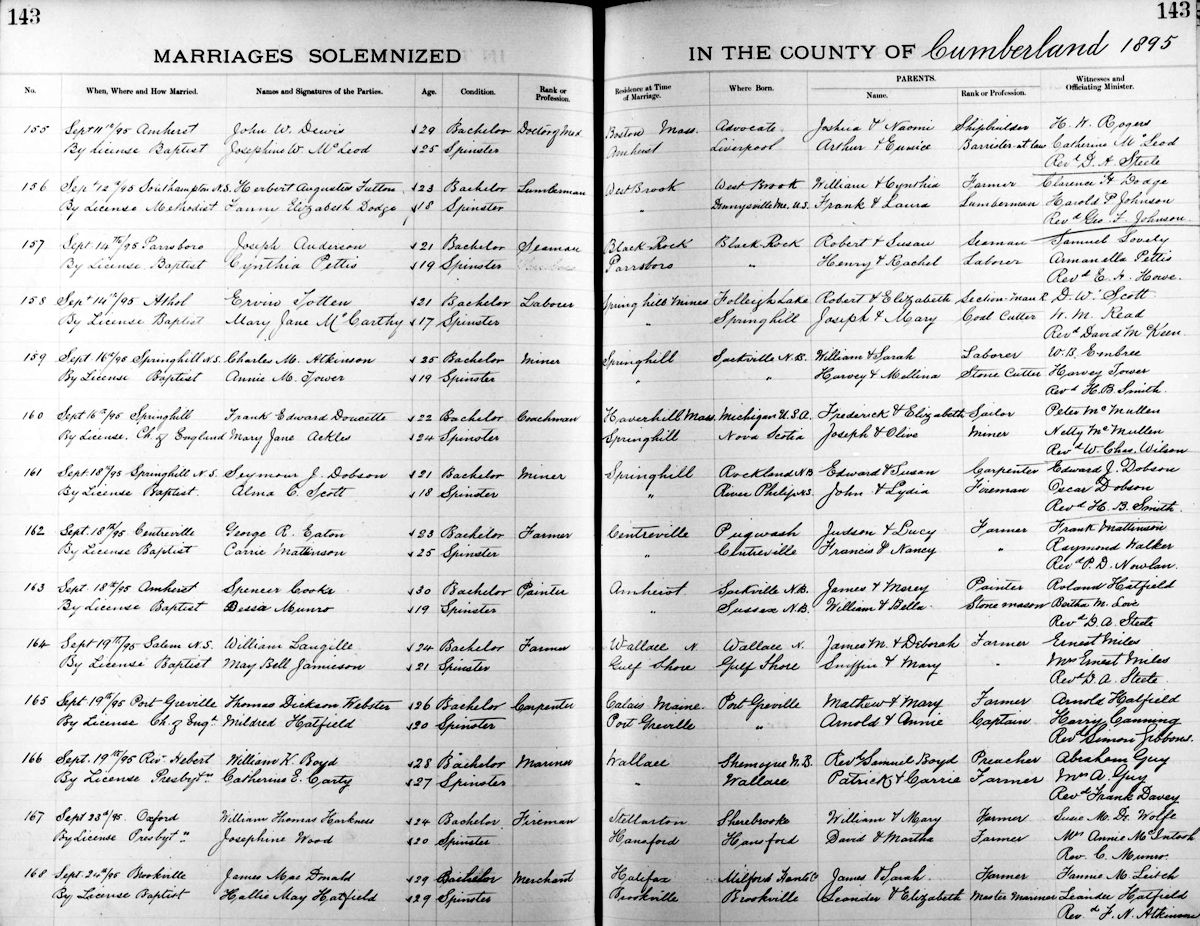 143
143
MARRIAGES SOLEMNIZED
IN THE COUNTY OF Cumberland 1895
No. When, Where and How Married. Names and Signatures of the Parties. Age. Condition. Rank or Profession. Residence at Time of Marriage. Where Born. PARENTS. Name. Rank or Profession. Witnesses and Officiating Minister.
155 Sept 11th/95 Amherst John W. Dewis 29 Bachelor Doctor of Med Boston Mass. Advocate Joshua & Naomi Shipbuilder H. W. Rogers
By License Baptist Josephine W. McLeod 25 Spinster Amherst Liverpool Arthur & Eunice Barrister-at-law Catherine McLeod
Revd D. A. Steele
156 Sep 12th/95 Southampton N.S. Herbert Augustus Fulton 23 Bachelor Lumberman West Brook West Brook William & Cynthia Farmer Clarence H. Dodge
By License Methodist Fanny Elizabeth Dodge 18 Spinster " Dennysville Me. U.S. Frank & Laura Lumberman Harold P Johnson
Revd Geo. F. Johnson
157 Sept 14th/95 Parrsboro Joseph Anderson 21 Bachelor Seaman Black-Rock Black-Rock Robert & Susan Seaman Samuel Lovely
By License Baptist Cynthia Pettis 19 Spinster Parrsboro " Henry & Rachel Laborer Armanella Pettis
Revd E. H. Howe.
158 Sept 14th/95 Athol Ervin Totten 21 Bachelor Laborer Spring hill Mines Folleigh Lake Robert & Elizabeth Section-man R D. W. Scott
By License Baptist Mary Jane McCarthy 17 Spinster " Springhill Joseph & Mary Coal Cutter W. M. Read
Revd David McKeen
159 Sept 16th/95 Springhill N.S. Charles M. Atkinson 25 Bachelor Miner Springhill Sackville N.B. William & Sarah Laborer W. B. Embree
By License Baptist Annie M. Tower 19 Spinster " " Harvey & Mellina Stone Cutter Harvey Tower
Revd H. B. Smith.
160 Sept 16th/95 Springhill Frank Edward Doucette 22 Bachelor Coachman Haverhill Mass. Michigan U.S.A. Frederick & Elizabeth Sailor Peter McMullen
By License. Ch. of England Mary Jane Ackles 24 Spinster Springhill Nova Scotia Joseph & Olive Miner Netty McMullen
Revd W. Chas. Wilson
161 Sept. 18th/95 Springhill N.S. Seymour J. Dobson 21 Bachelor Miner Springhill Rockland N.B. Edward & Susan Carpenter Edward J. Dobson
By License Baptist. Alma C. Scott 18 Spinster " River Philip N.S. John & Lydia Fireman Oscar Dobson
Revd H. B. Smith.
162 Sept. 18th/95 Centreville George R. Eaton 23 Bachelor Farmer Centreville Pugwash Judson & Lucy Farmer Frank Mattinson
By License Baptist Carrie Mattinson 25 Spinster " Centreville Francis & Nancy " Raymond Walker
Revd P. D. Nowlan.
163 Sept. 18th/95 Amherst Spencer Cooke 30 Bachelor Painter Amherst Sackville N.B. James & Mary Painter Roland Hatfield
By License Baptist Bessie Munro 19 Spinster " Sussex N.B. William & Bella Stone mason Bertha M. Love
Revd D. A. Steele
164 Sept 19th/95 Salem N.S. William Langille 24 Bachelor Farmer Wallace N. Wallace N. James M. & Deborah Farmer Ernest Miles
By License Baptist May Bell Jamieson 21 Spinster Gulf Shore Gulf Shore Sniffin & Mary " Mrs Ernest Miles
Revd D. A. Steele.
165 Sept 19th/95 Port-Greville Thomas Dickson Webster 26 Bachelor Carpenter Calais Maine. Port Greville Mathew & Mary Farmer Arnold Hatfield
By License Ch. of Engd Mildred Hatfield 20 Spinster Port Greville " Arnold & Annie Captain Harry Canning
Revd Simon Gibbons.
166 Sept. 19th/95 Riv. Hebert William K. Boyd 28 Bachelor Mariner Wallace Shemogue N.B. Revd Samuel Boyd Preacher Abraham Guy
By License Presbytn Catherine E. Carty 27 Spinster " Wallace Patrick & Carrie Farmer Mrs A. Guy
Revd Frank Davey
167 Sept 23d/95. Oxford William Thomas Harkness 24 Bachelor Fireman Stellarton Sherbrooke William & Mary Farmer Susie M. De Wolfe
By License Presbytn Josephine Wood 20 Spinster Hansford Hansford David & Martha Farmer Mrs Annie McIntosh
Rev. C. Munro.
168 Sept. 24th/95 Brookville James MacDonald 29 Bachelor Merchant Halifax Milford Hants Co. James & Sarah Farmer Fannie M. Leitch
By License Baptist Hallie May Hatfield 29 Spinster Brookville Brookville Leander & Elizabeth Master Mariner Leander Hatfield
Rev.d F. N. Atkinson